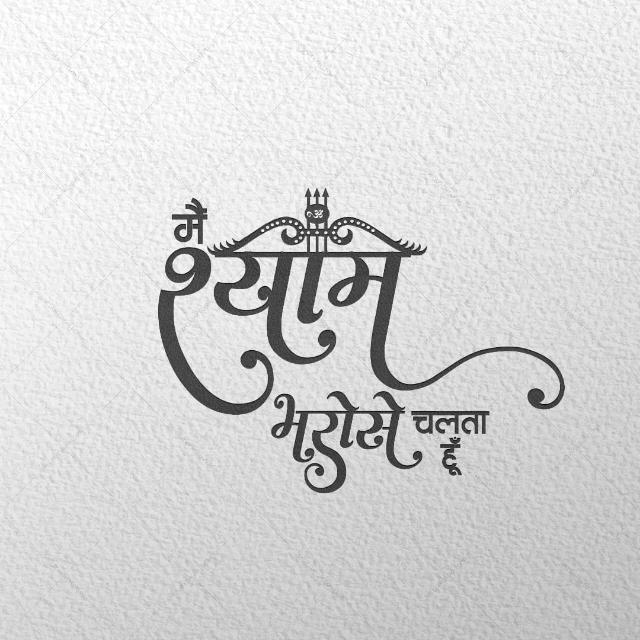 मैं
श्याम
ॐ
भरोसे चलता
हूँ